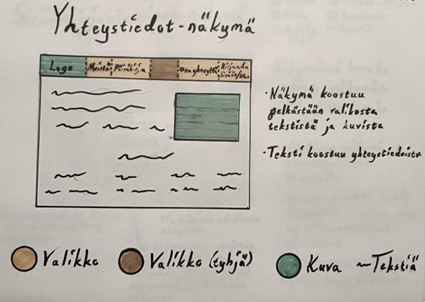 Yhteystiedot-näkymä
Logo Meistä Ota yhteyttä Kirjaudu
· Näkymä koostuu
pelkästään valikosta
tekstistä ja kuvista
· Teksti koostuu yhteystiedoista
Valikko Valikko (tyhjä) Kuva ~Tekstiä